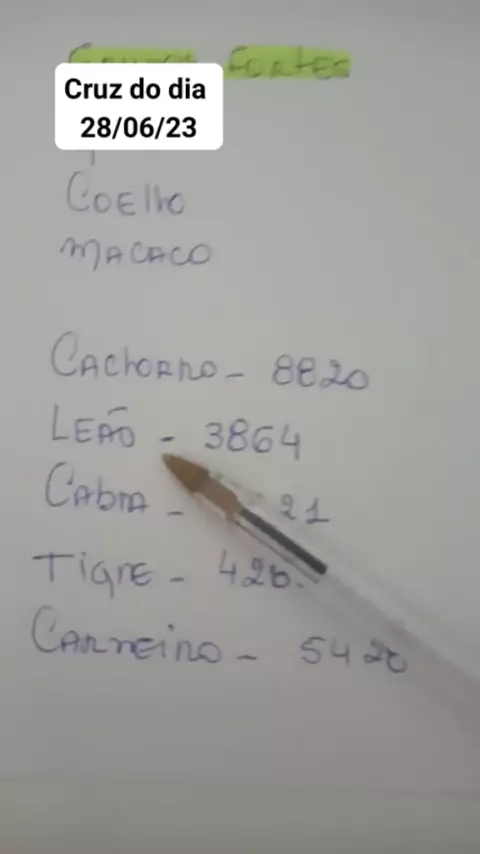 FORTES
Cruz do dia
28/06/23
COElho
MACACO
CAChORRO - 8820
LEÃO - 3864
CAbRA - 21
TigRE - 420
CARNEiRO - 5420